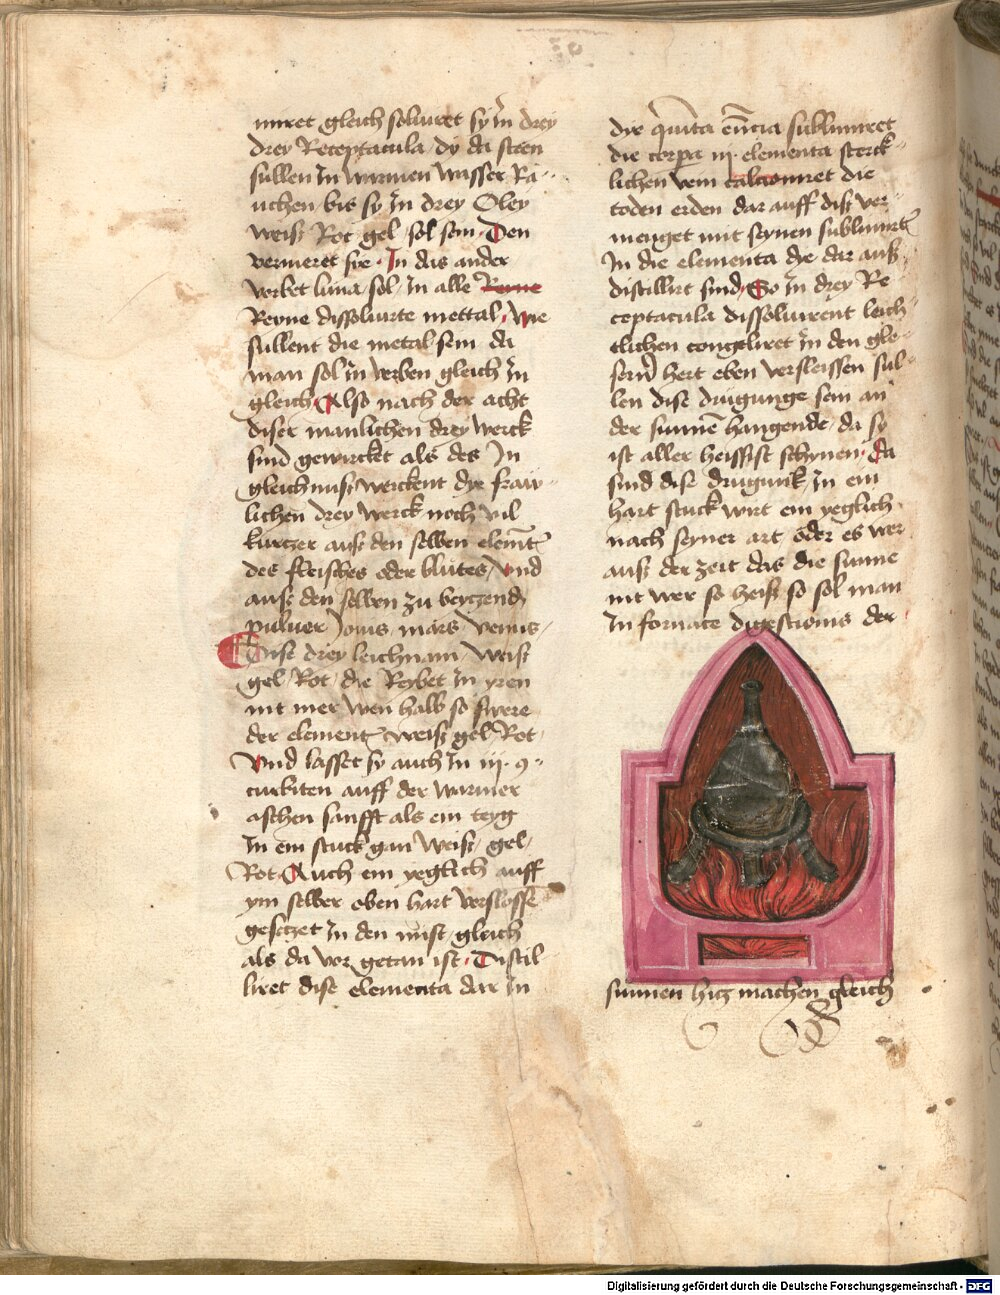 miret gleich soluiret sy in drey
drey Receptacula, dy da steen
sullen In warmen wasser Ra-
uchen bis sy in drey Oley
weiss Rot gel, sol sein. Den
vermeret sie. In das ander
verbet luna, sol, In alle Reyne
Reyne dissoluirte mettal, Wie
sullent die metal sein da
man sol in verben gleich in
gleich, Also nach der acht
diser manlichen drey werck
sind gewircket als des In
gleichnuss werckent dye fraw-
lichen drey werck noch vil
kurtzer auss den selben element
des fleisches oder blutes, Vnd
auss den selben zu beytzend
puluer Jouis, mars, venus,
Dise drey leichnam, weiss
gel Rot, die Reybet In yren
nit mer wen halb so swere
der element weiss gel Rot,
Vnd lasset sy auch In iij. c-
curbiten auff der warmer
aschen sanfft als ein teyg
In ein stuck gan weiss, gel,
Rot. Auch ein yeglich auff
ym selber oben hart verslossen
gesetzet In den mist, gleich
als da vor getan ist. Distil-
liret dise elementa dar In
die quinta essencia sublimiret
die corpa iij. elementa sterck-
lichen vem calcioniret die
toden erden dar auff dist ver-
menget mit seynen sublimirte
In die elementa dye dar auss
distillirt sind, So in drey Re
ceptacula dissoluirent leich
tlichen congeliret in den gle-
sern hert eben verslossen sul-
len dise drugunge sein an
der sunnen hangende, da sy
ist aller heissist schynen, da
sind dise drugunk, In ein
hart stuck wirt ein yeglich
nach seyner art oder es wer
auss der zeit das die sunne
nit wer so heiss so sol man
In fornace digestionis der
sunnen hitz machen gleich
Digitalisierung gefördert durch die Deutsche Forschungsgemeinschaft - DFG